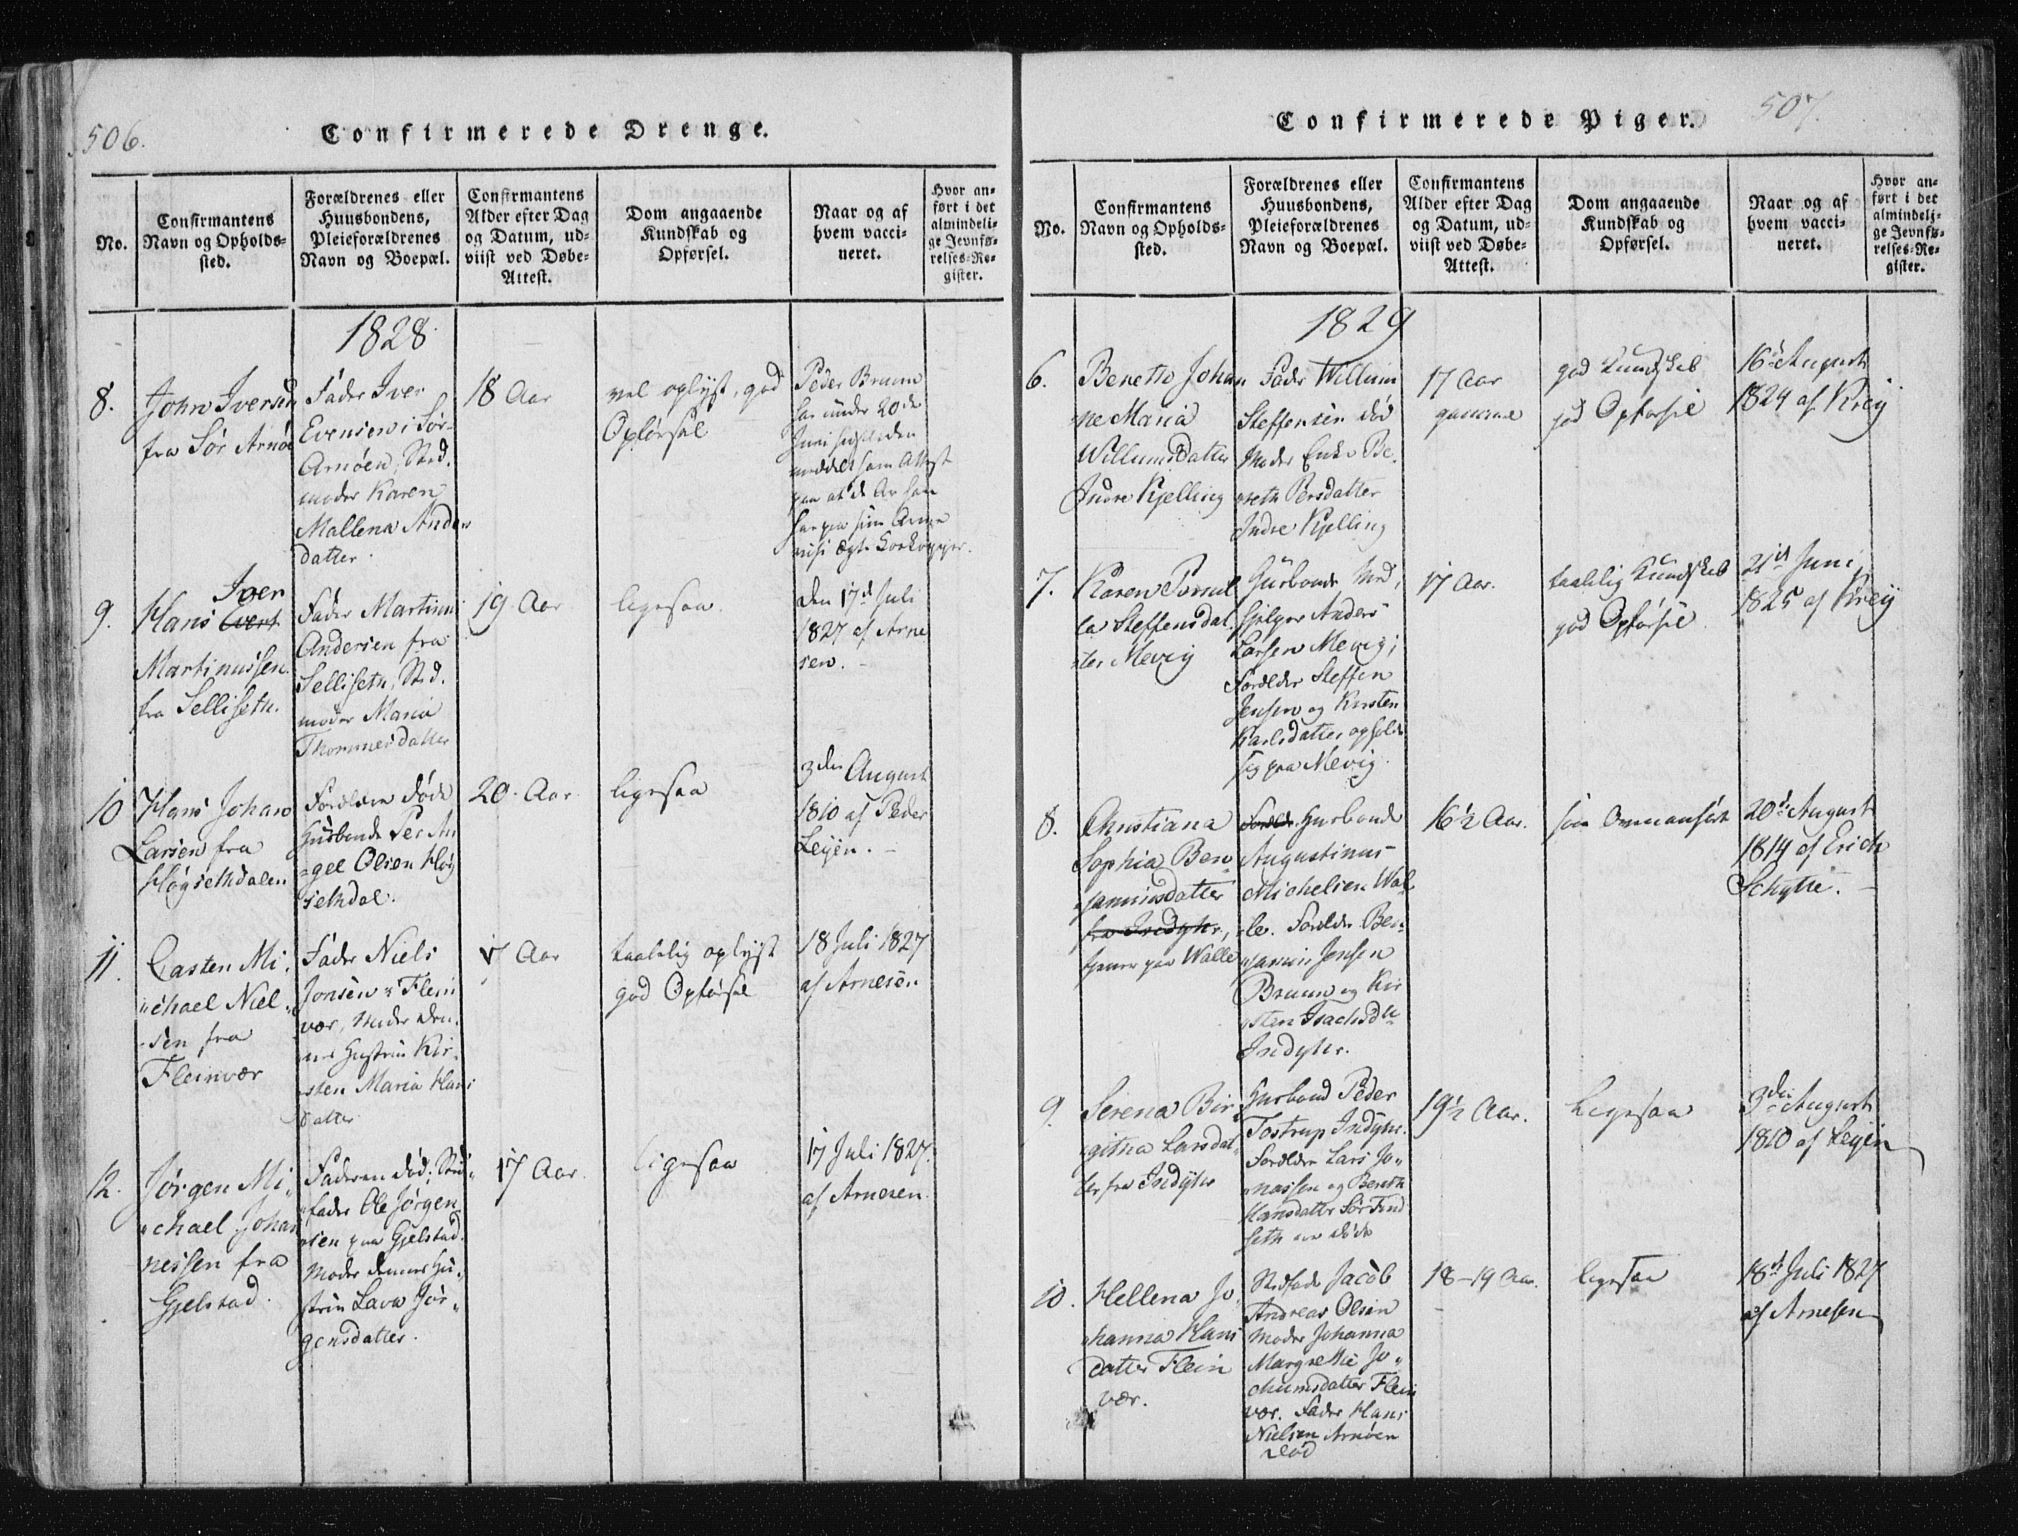 506.
Confirmerede Drenge.
No.
Confirmantens
Navn og Opholds-
sted.
Forældrenes eller
Huusbondens,
Pleieforældrenes
Navn og Boepæl.
Confirmantens
Alder efter Dag
og Datum, ud-
viist ved Døbe-
Attest.
Dom angaaende
Kundskab og
Opførsel.
Naar og af
hvem vacci-
neret.
Hvor an-
ført i det
almindeli-
ge Jevnfø-
relses-Re-
gister.
1828
8.
John Iversen
fra Sør Arnøe
Fader Iver
Evensen i Sør-
Arnøen, Sted-
moder Karen
Mallena Anders
datter.
18 Aar
vel oplyst, god
Opførsel
Peder Bruun
har under 20de
Juni
9.
Iver
Hans Evert
Martinussen
fra Selliseth.
Fader Martinus
Andersen fra
Selliseth, Sted-
moder Maria
Thommesdatter
19 Aar
ligesaa
Den 17de Juli
1827 af Arne
sen.
10
Hans Johan
Larsen fra
Høgsethdalen
Forældre døde
Husbonde Per An
gel Olsen Høg
sethdal.
20 Aar
ligesaa
3die August
1810 af Peder
Leyen.
11.
Casten Mi
chael Niel
sen fra
Fleinvær
Fader Niels
Jonsen i Flein
vær, Moder den
nes Hustru Kir
sten Maria Hans
datter
17 Aar
taalelig oplyst
god Opførsel
18 Juli 1827
af Arnesen
12.
Jørgen Mi
chael Johan
nessen fra
Gjelstad.
Faderen død; Sted
fader Ole Jørgen
sen paa Gjelstad.
Moder dennes Hu
stru Lava Jør
gensdatter.
17 Aar.
ligesaa
17 Juli 1827.
af Arnesen.
507.
Confirmerede Piger.
No.
Confirmantens
Navn og Opholds-
sted.
Forældrenes eller
Huusbondens,
Pleieforældrenes
Navn og Boepæl.
Confirmantens
Alder efter Dag
og Datum, ud-
viist ved Døbe-
Attest.
Dom angaaende
Kundskab og
Opførsel.
Naar og af
hvem vacci-
neret.
Hvor an-
ført i det
almindeli-
ge Jevnfø-
relses-Re-
gister.
1829
6.
Beneth Johan
ne Maria
Willumsdatter
Indre Kjelling
Fader Willum
Steffensen død
Moder Enke Be
neth Persdatter
Indre Kjelling
17 Aar
gammel
god Kundskab
god Opførsel
16de August
1824 af Krey
7.
Karen
la Steffensdat
ter Mevig
Husbonde Med
hjelper Anders
Larsen Mevig;
Forældre Steffen
Jensen og Kirsten
Karlsdatter opholde
sig paa Mevig.
17 Aar.
taalelig Kundskab
god Opførsel
21de Juni
1825 af Krey
8.
Christiana
Sophia Ben
jaminsdatter
fra Indyhr,
tjener paa Walle
Foræld. Husbonde
Augustinus
Michelsen Wal
le. Forældre Ben
jamin Jensen
Bruun og Kir
sten Isachsdtr
Indyhr.
16½ Aar.
som
20de August
1814 af Erich
Schytte.
9.
Serena Bir
githa Larsdat
ter fra Indyhr
Husbond Peder
Tostrup Indyhr.
Forældre Lars Jo
nassen og Beneth
Hansdatter Sør Find
seth ere døde
19½ Aar.
ligesaa
3die August
1810 af Leyen
10.
Hellena Jo
hanna Hans
datter Flein
vær.
Stedfader Jacob
Andreas Olsen
Moder Johanna
Margrethe Jo
chumsdatter Flein
vær. Fader Hans
Nielsen Arnøen
død
18-19 Aar.
ligesaa
18de Juli 1827
af Arnesen